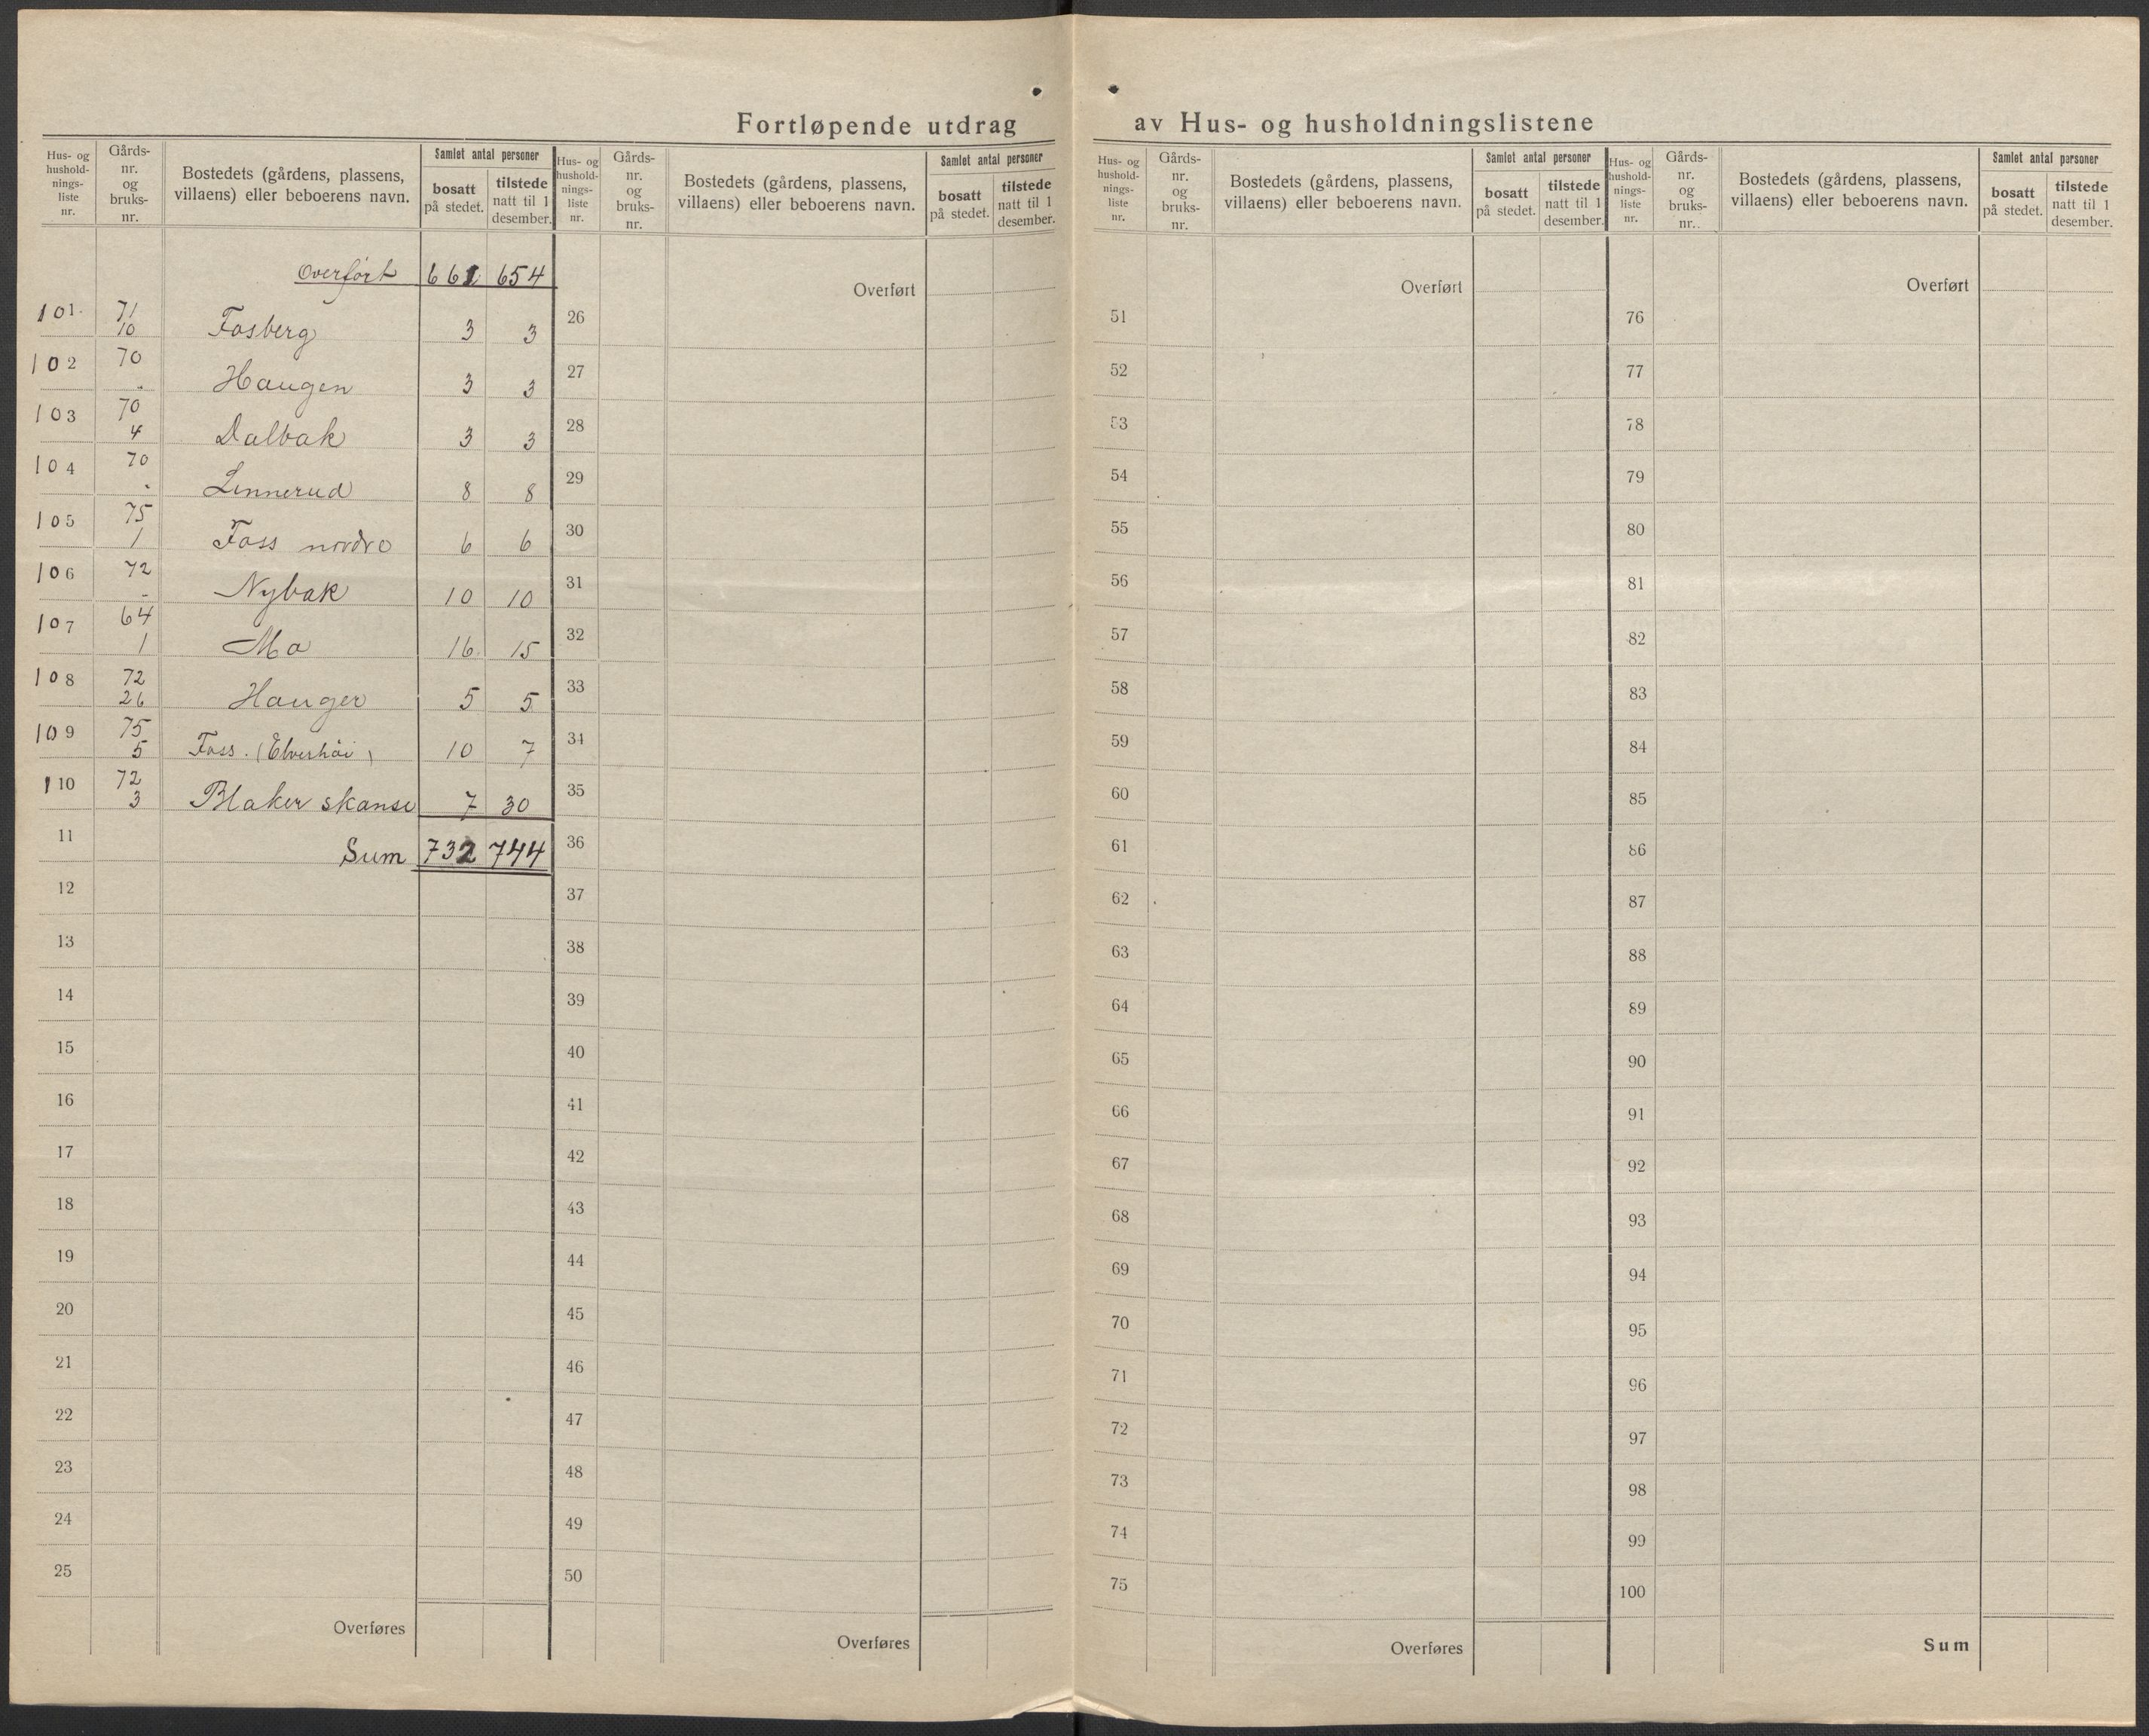 Fortløpende utdrag av Hus- og husholdningslistene
Hus- og hushold-nings-liste nr.
Gårds-nr. og bruks-nr.
Bostedets (gårdens, plassens, villaens) eller beboerens navn.
Samlet antal personer
bosatt på stedet.
tilstede natt til 1 desember.
Overført 661 654
101. 71 10 Fosberg 3 3
102 70 - Haugen 3 3
103 70 4 Dalbak 3 3
104 70 - Linnerud 8 8
105 75 1 Foss nordre 6 6
106 72 - Nybak 10 10
107 64 1 Mo 16 15
108 72 26 Hauger 5 5
109 75 5 Foss. (Elverhöi) 10 7
110 72 3 Blaker skanse 7 30
11 Sum 732 744
12
13
14
15
16
17
18
19
20
21
22
23
24
25
Overføres
Hus- og hushold-nings-liste nr.
Gårds-nr. og bruks-nr.
Bostedets (gårdens, plassens, villaens) eller beboerens navn.
Samlet antal personer
bosatt på stedet.
tilstede natt til 1 desember.
Overført
26
27
28
29
30
31
32
33
34
35
36
37
38
39
40
41
42
43
44
45
46
47
48
49
50
Overføres
Hus- og hushold-nings-liste nr.
Gårds-nr. og bruks-nr.
Bostedets (gårdens, plassens, villaens) eller beboerens navn.
Samlet antal personer
bosatt på stedet.
tilstede natt til 1 desember.
Overført
51
52
53
54
55
56
57
58
59
60
61
62
63
64
65
66
67
68
69
70
71
72
73
74
75
Overføres
Hus- og hushold-nings-liste nr.
Gårds-nr. og bruks-nr..
Bostedets (gårdens, plassens, villaens) eller beboerens navn.
Samlet antal personer
bosatt på stedet.
tilstede natt til 1 desember.
Overført
76
77
78
79
80
81
82
83
84
85
86
87
88
89
90
91
92
93
94
95
96
97
98
99
100
Sum